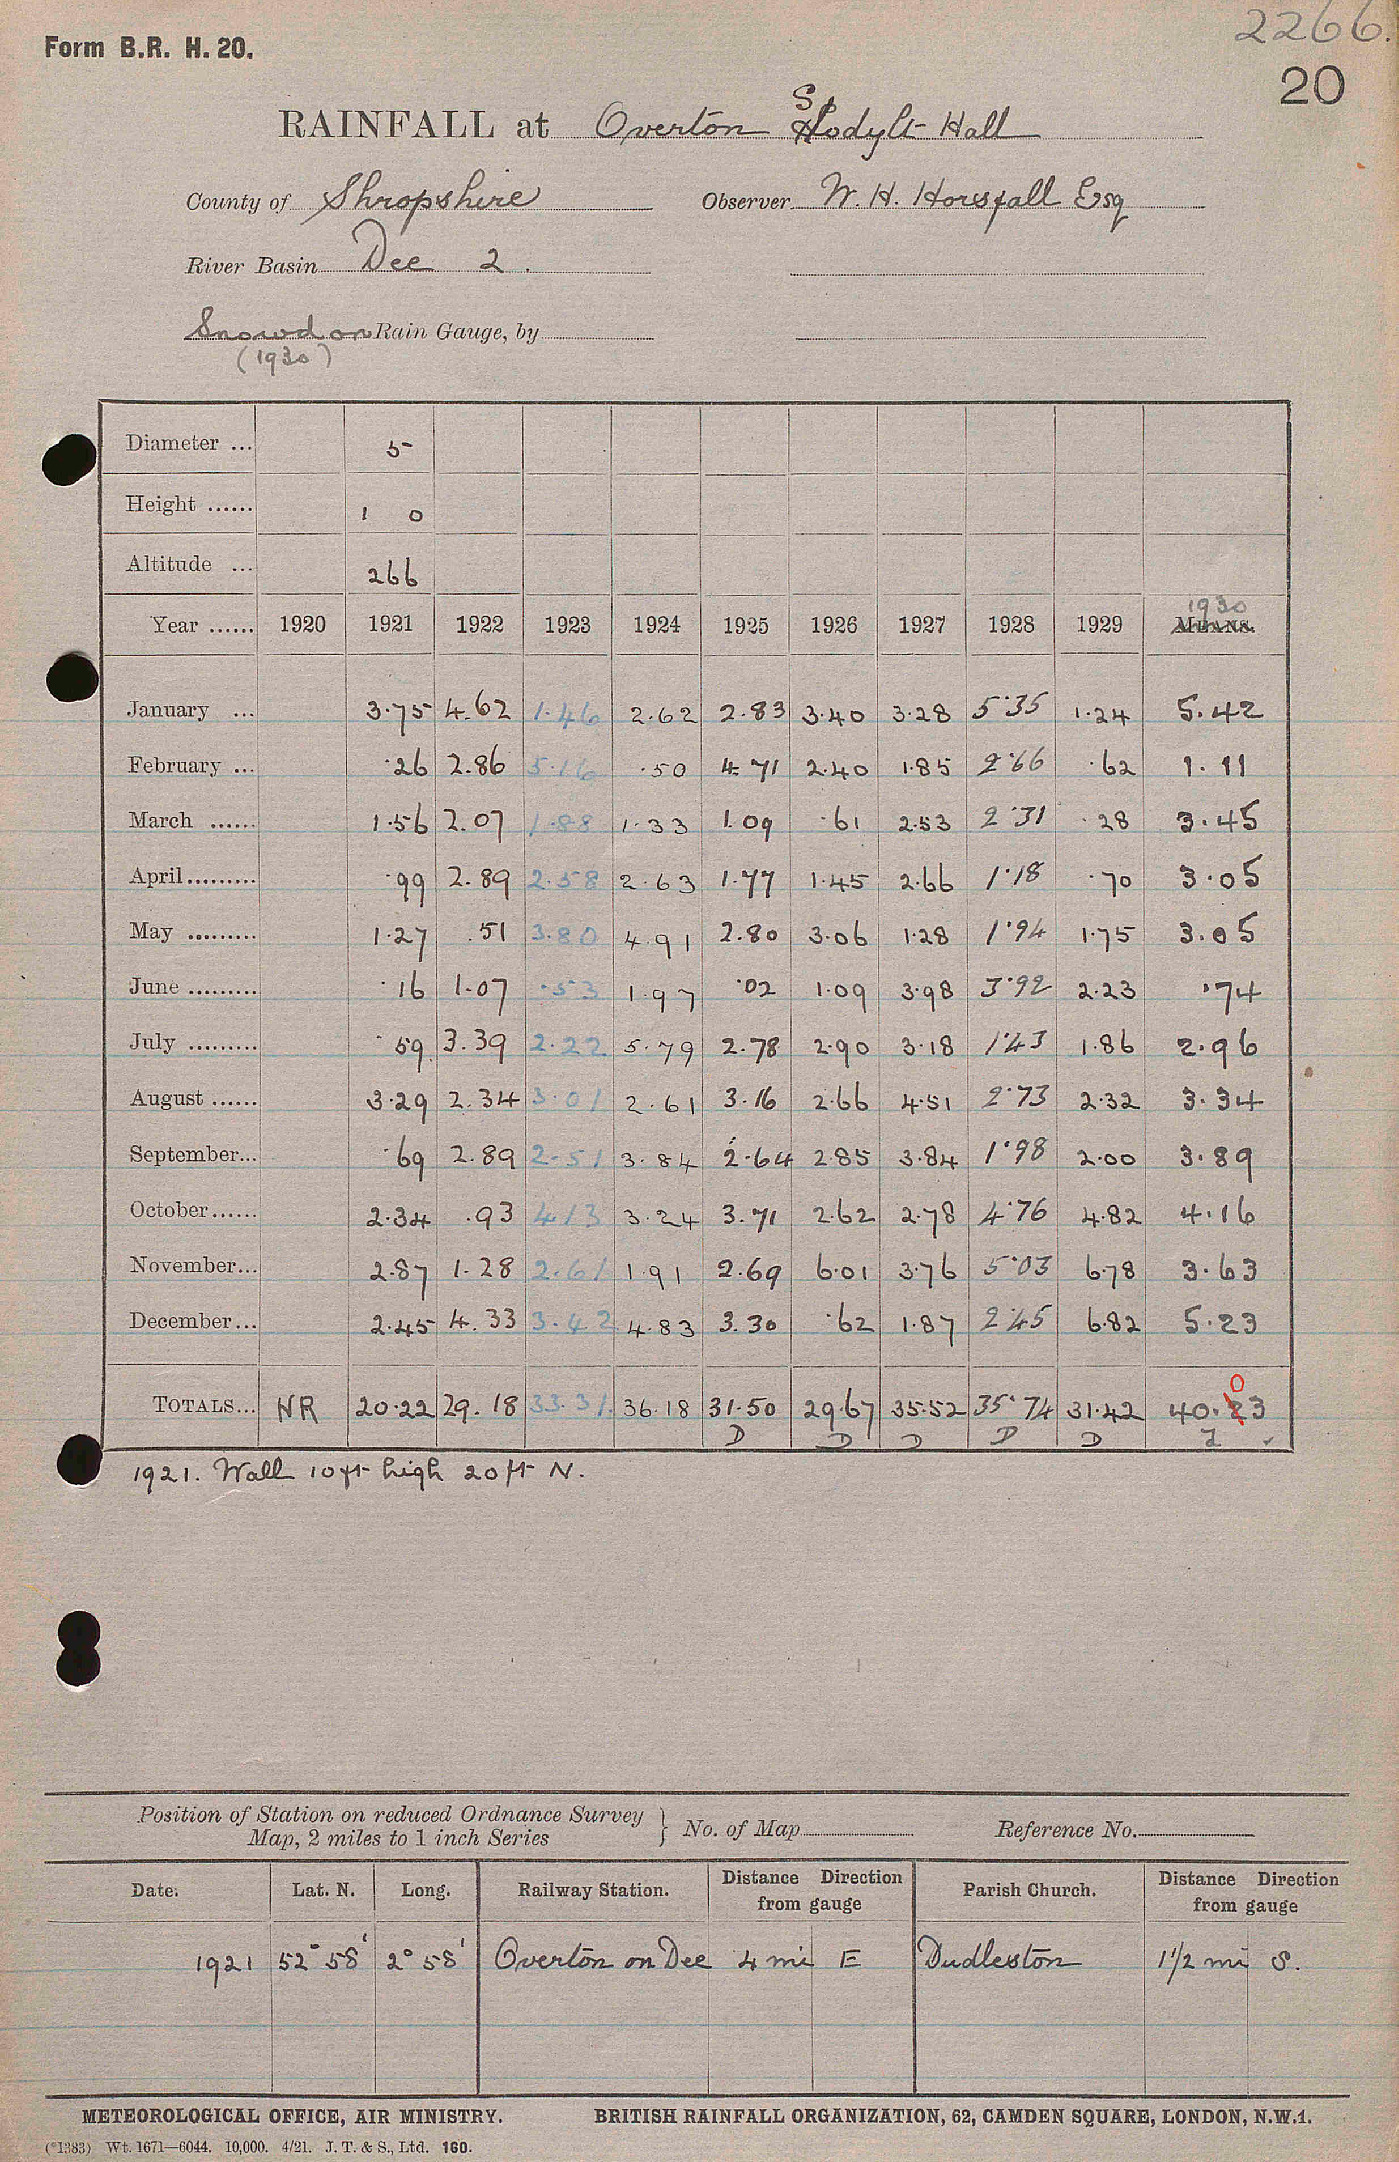 2266.
Form B.R. H. 20.
20
RAINFALL at Overton Shodylt Hall
County of Shropshire Observer W. H. Horsfall Esq
River Basin Dee 2.
Snowdon Rain Gauge, by
(1930)
Diameter ... 5
Height ...... 1 0
Altitude ... 266
1930
Year ...... 1920 1921 1922 1923 1924 1925 1926 1927 1928 1929 MEANS.
January ... 3.75 4.62 1.46 2.62 2.83 3.40 3.28 5.35 1.24 5.42
February ... .26 2.86 5.16 .50 4.71 2.40 1.85 2.66 .62 1.11
March ...... 1.56 2.07 1.88 1.33 1.09 .61 2.53 2.31 .28 3.45
April......... .99 2.89 2.58 2.63 1.77 1.45 2.66 1.18 .70 3.05
May ......... 1.27 .51 3.80 4.91 2.80 3.06 1.28 1.94 1.75 3.05
June ......... .16 1.07 .53 1.97 .02 1.09 3.98 3.92 2.23 .74
July ......... .59 3.39 2.22 5.79 2.78 2.90 3.18 1.43 1.86 2.96
August ...... 3.29 2.34 3.01 2.61 3.16 2.66 4.51 2.73 2.32 3.34
September... .69 2.89 2.51 3.84 2.64 2.85 3.84 1.98 2.00 3.89
October...... 2.34 .93 4.13 3.24 3.71 2.62 2.78 4.76 4.82 4.16
November... 2.87 1.28 2.61 1.91 2.69 6.01 3.76 5.03 6.78 3.63
December... 2.45 4.33 3.42 4.83 3.30 .62 1.87 2.45 6.82 5.23
0
TOTALS... NR 20.22 29.18 33.31 36.18 31.50 29.67 35.52 35.74 31.42 40.23
D D D D D
1921. Wall 10 ft high 20 ft N.
Position of Station on reduced Ordnance Survey
Map, 2 miles to 1 inch Series } No. of Map Reference No.
Date. Lat. N. Long. Railway Station. Distance Direction from gauge Parish Church. Distance Direction from gauge
1921 52° 58' 2° 58' Overton on Dee 4 mi E Dudleston 1 1/2 mi S.
METEOROLOGICAL OFFICE, AIR MINISTRY. BRITISH RAINFALL ORGANIZATION, 62, CAMDEN SQUARE, LONDON, N.W.1.
(*1383) Wt. 1671—6044. 10,000. 4/21. J. T. & S., Ltd. 160.